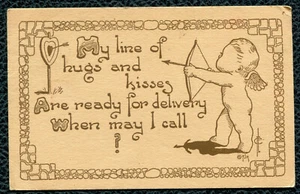 My line of
hugs and
kisses
Are ready for delivery
When may I call
?